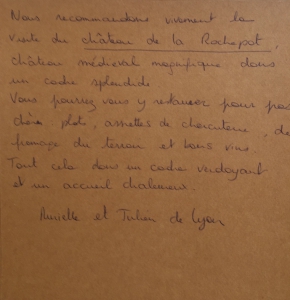 Nous recommandons vivement la
visite du château de la Rochepot,
château médiéval magnifique dans
un cadre splendide
Vous pourrez vous y restaurer pour pas
cher plats, assiettes de charcuterie, de
fromage du terroir et bons vins
Tout cela dans un cadre verdoyant
et un accueil chaleureux.
et Julien de Lyon